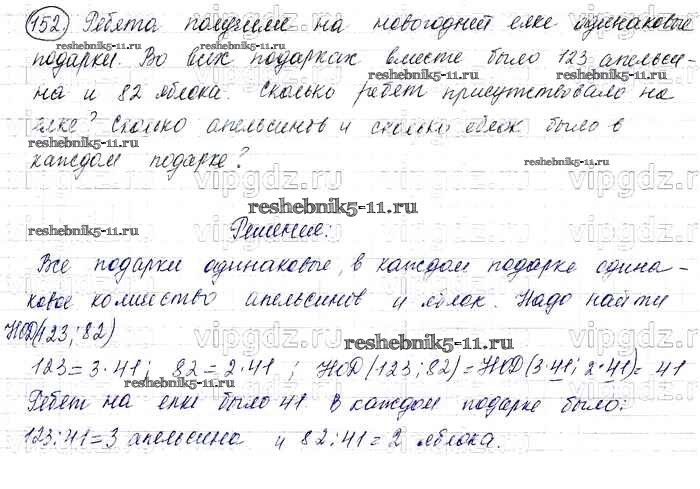 152 Ребята получили на новогодней елке одинаковые
reshebnik5-11.ru
подарки. Во всех подарках вместе было 123 апельси-
reshebnik5-11.ru
на и 82 яблока. Сколько ребят присутствовало на
vipgdz.ru
елке? Сколько апельсинов и сколько яблок было в
reshebnik5-11.ru
каждом подарке?
reshebnik5-11.ru
vipgdz.ru
reshebnik5-11.ru
reshebnik5-11.ru
Решение:
reshebnik5-11.ru
Все подарки одинаковые, в каждом подарке одина-
vipgdz.ru
ковое количество апельсинов и яблок. Надо найти
НОД(123; 82)
reshebnik5-11.ru
123=3·41; 82=2·41; НОД(123; 82)=НОД(3·41; 2·41)= 41
reshebnik5-11.ru
reshebnik5-11.ru
Ребят на елке было 41 В каждом подарке было:
vipgdz.ru
123:41=3 апельсина и 82:41=2 яблока.